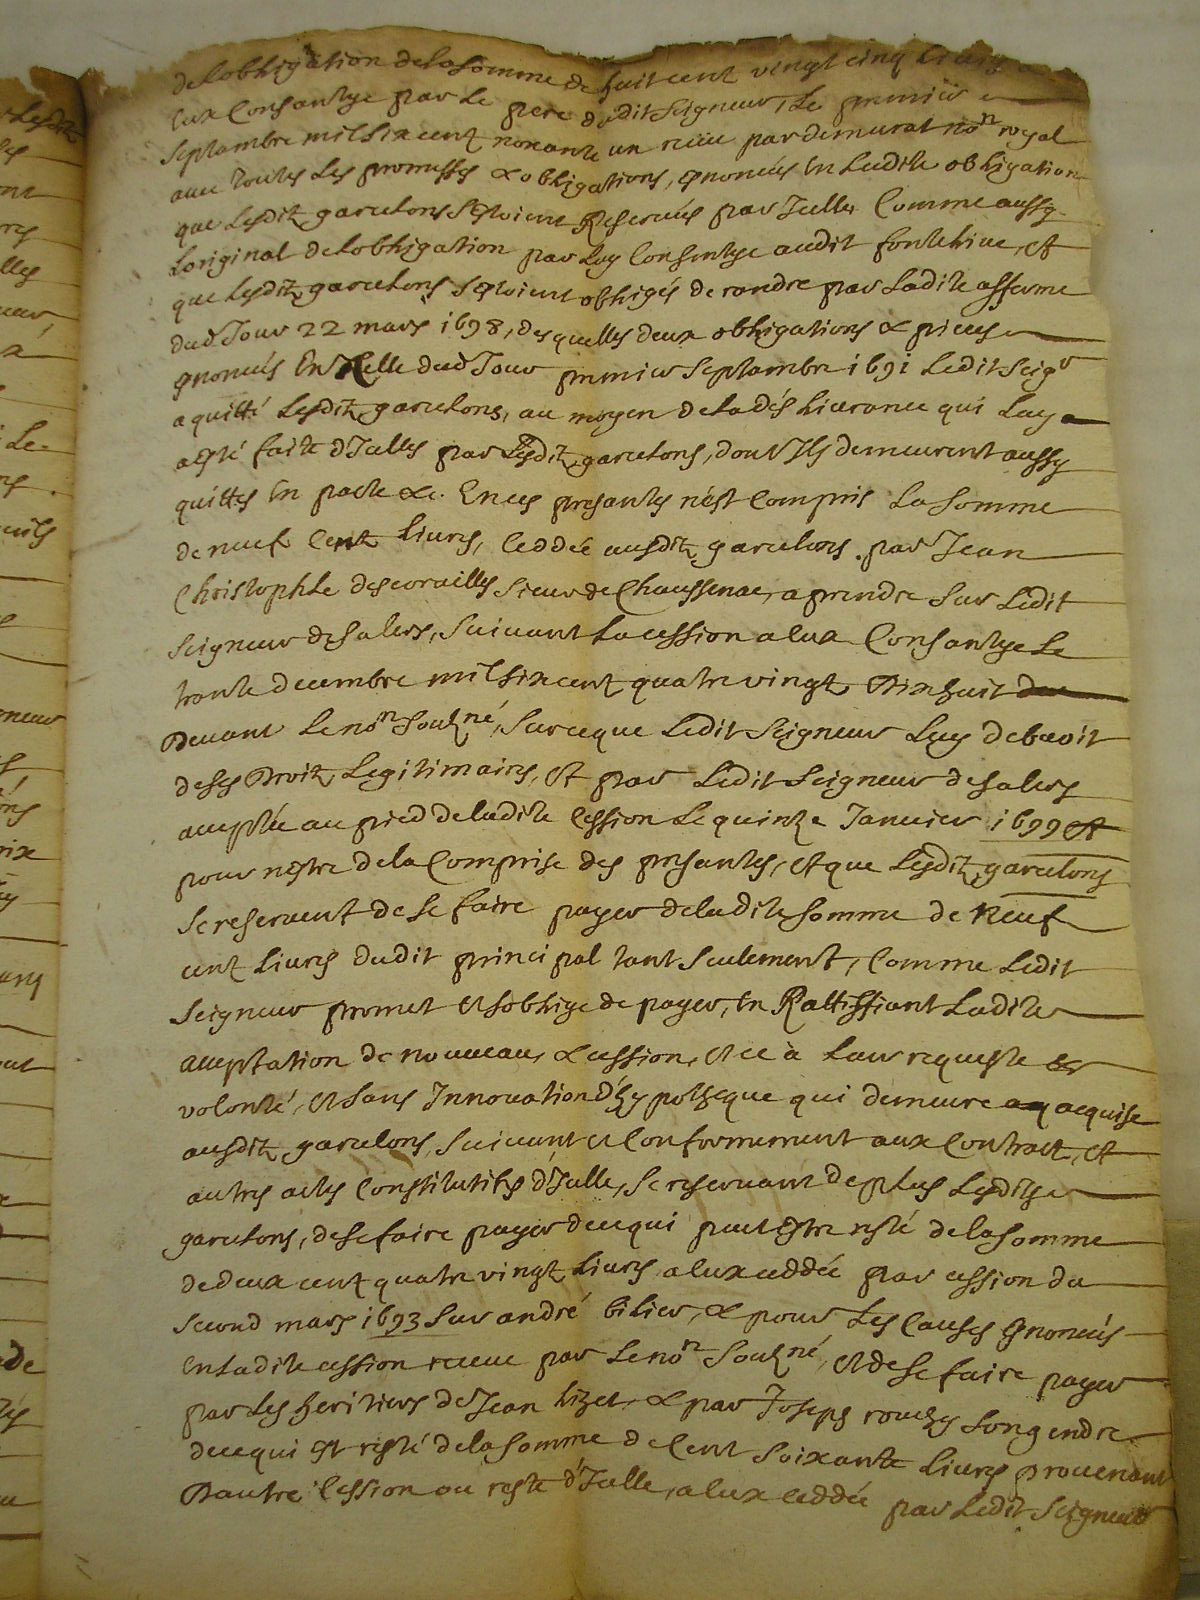 de lobligation de la somme de huit cent vingt cinq livres a
eux Consantye par Le pere dudit seigneur, Le premier
septambre mil six cent nonante un receu par demurat no.re royal
avec toutes Les promesses & obligations, enoncées En Ladite obligation
que Lesditz garcelons seroient Reservés par Icelle, Comme aussy
Loriginal de lobligation par Luy Consentye audit fontelive, et
que Lesditz garcelons seroient obligés de randre par Ladite afferme
dud Jour 22 mars 1698, desquelles deux obligations & pieces
enoncées En Icelle dud Jour premier septambre 1691 Ledit seigr
a quitté Lesditz garcelons, au moyen de la deslivrance qui Luy a
esté faite d'Icelles par Lesditz garcelons, dont Ils demeurent aussy
quittes En pacte &c. En ces presantes n'est Compris La somme
de neuf Cent Livres, Ceddée ausditz garcelons par Jean
Christophle descorailles sieur de Chaussenac, a prendre sur Ledit
seigneur de salers, suivant La cession a eux Consantye Le
trante decembre mil six cent quatre vingt Dix huit
Devant Le no.re soubné, sur ce que Ledit seigneur Luy debvoit
de ses Droitz Legitimaires, et par Ledit seigneur de salers
acceptée au pied de ladite Cession Le quinze Janvier 1699 et
pour n'estre de la Comprise des presantes, et que Lesditz garcelons
se reservent de se faire payer de ladite somme de Neuf
cent Livres dudit principal tant seulement, Comme Ledit
seigneur promet et soblige de payer, En Rattiffiant Ladite
acceptation de nouveau, & cession, et ce à Leur requeste et
volonté, et sans Innovation d'hypotheque qui demeure acquise
ausditz garcelons, suivant et Conformement aux Contract, et
autres actes Constitutifs d'Icelle, se reservant De plus Lesditz
garcelons, de se faire payer de ce qui peut Estre resté de la somme
de deux cent quatre vingt Livres a eux ceddée par cession du
second mars 1693 sur andré bilier, & pour Les Causes Enoncées
En Ladite cession receue par Le no.re soubné, et de se faire payer
par Les heritiers de Jean Lizet & par Joseph rouchy son gendre
de ce qui Est resté de la somme de Cent soixante Livres provenant
Dautre Cession ou reste d'Icelle, a eux ceddée par Ledit seigneur